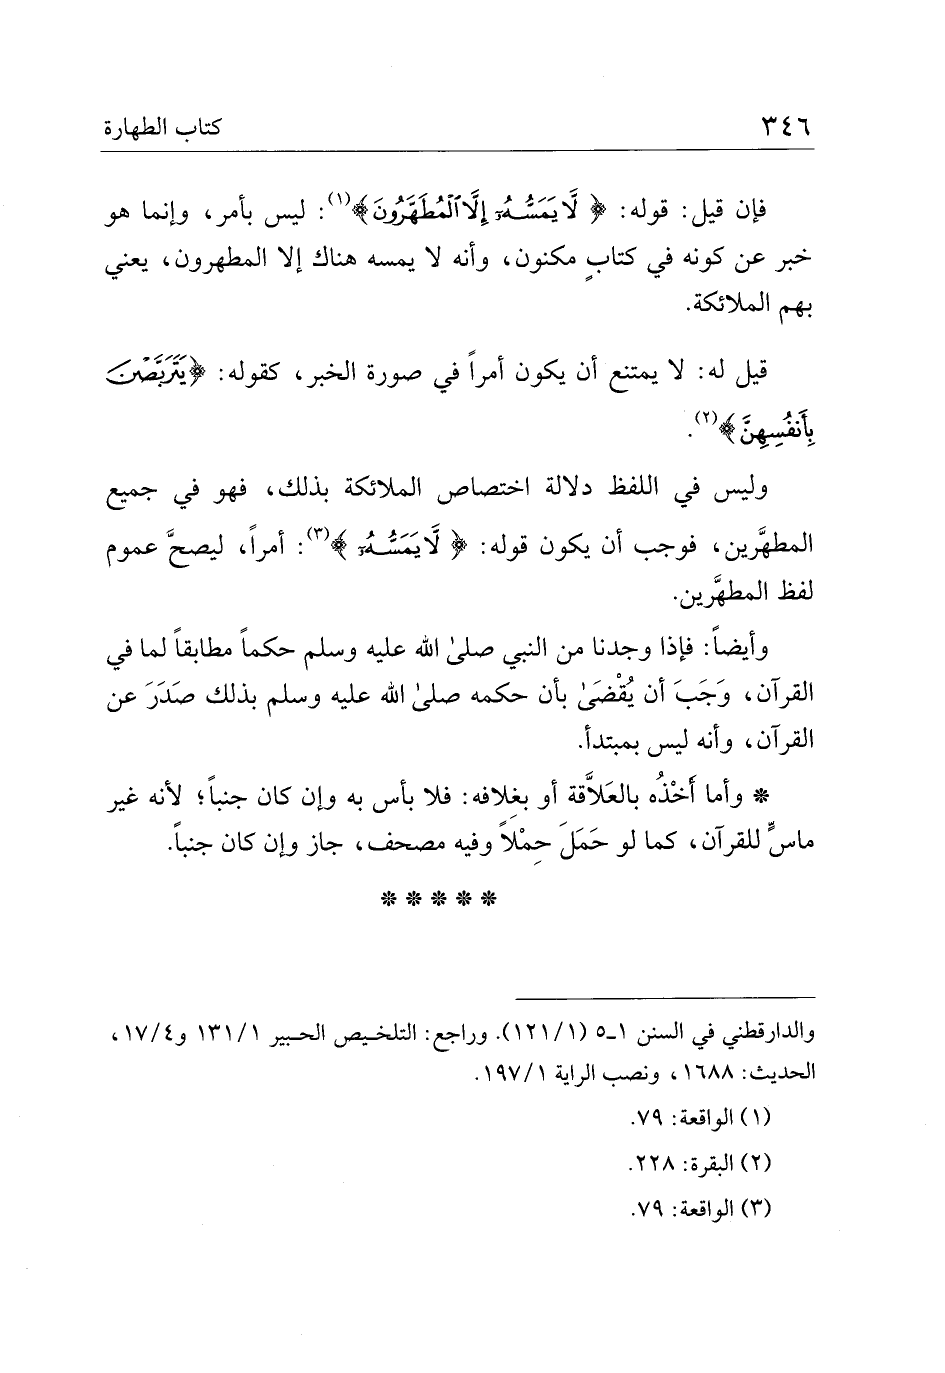 ٣٤٦ كتاب الطهارة
فإن قيل: قوله: ﴿لَّا يَمَسُّهُۥٓ إِلَّا ٱلْمُطَهَّرُونَ﴾(١): ليس بأمر، وإنما هو
خبر عن كونه في كتابٍ مكنون، وأنه لا يمسه هناك إلا المطهرون، يعني
بهم الملائكة.
قيل له: لا يمتنع أن يكون أمراً في صورة الخبر، كقوله: ﴿يَتَرَبَّصْنَ
بِأَنفُسِهِنَّ﴾(٢).
وليس في اللفظ دلالة اختصاص الملائكة بذلك، فهو في جميع
المطهَّرين، فوجب أن يكون قوله: ﴿لَّا يَمَسُّهُۥٓ﴾(٣): أمراً، ليصحَّ عموم
لفظ المطهَّرين.
وأيضاً: فإذا وجدنا من النبي صلىٰ الله عليه وسلم حكماً مطابقاً لما في
القرآن، وَجَبَ أن يُقْضَىٰ بأن حكمه صلىٰ الله عليه وسلم بذلك صَدَرَ عن
القرآن، وأنه ليس بمبتدأ.
* وأما أَخْذُه بالعَلاَّقة أو بغِلافه: فلا بأس به وإن كان جنباً؛ لأنه غير
ماسٍّ للقرآن، كما لو حَمَلَ حِمْلاً وفيه مصحف، جاز وإن كان جنباً.
* * * * *
والدارقطني في السنن ١-٥ (١/١٢١). وراجع: التلخيص الحبير ١/١٣١ و٤/١٧،
الحديث: ١٦٨٨، ونصب الراية ١/١٩٧.
(١) الواقعة: ٧٩.
(٢) البقرة: ٢٢٨.
(٣) الواقعة: ٧٩.